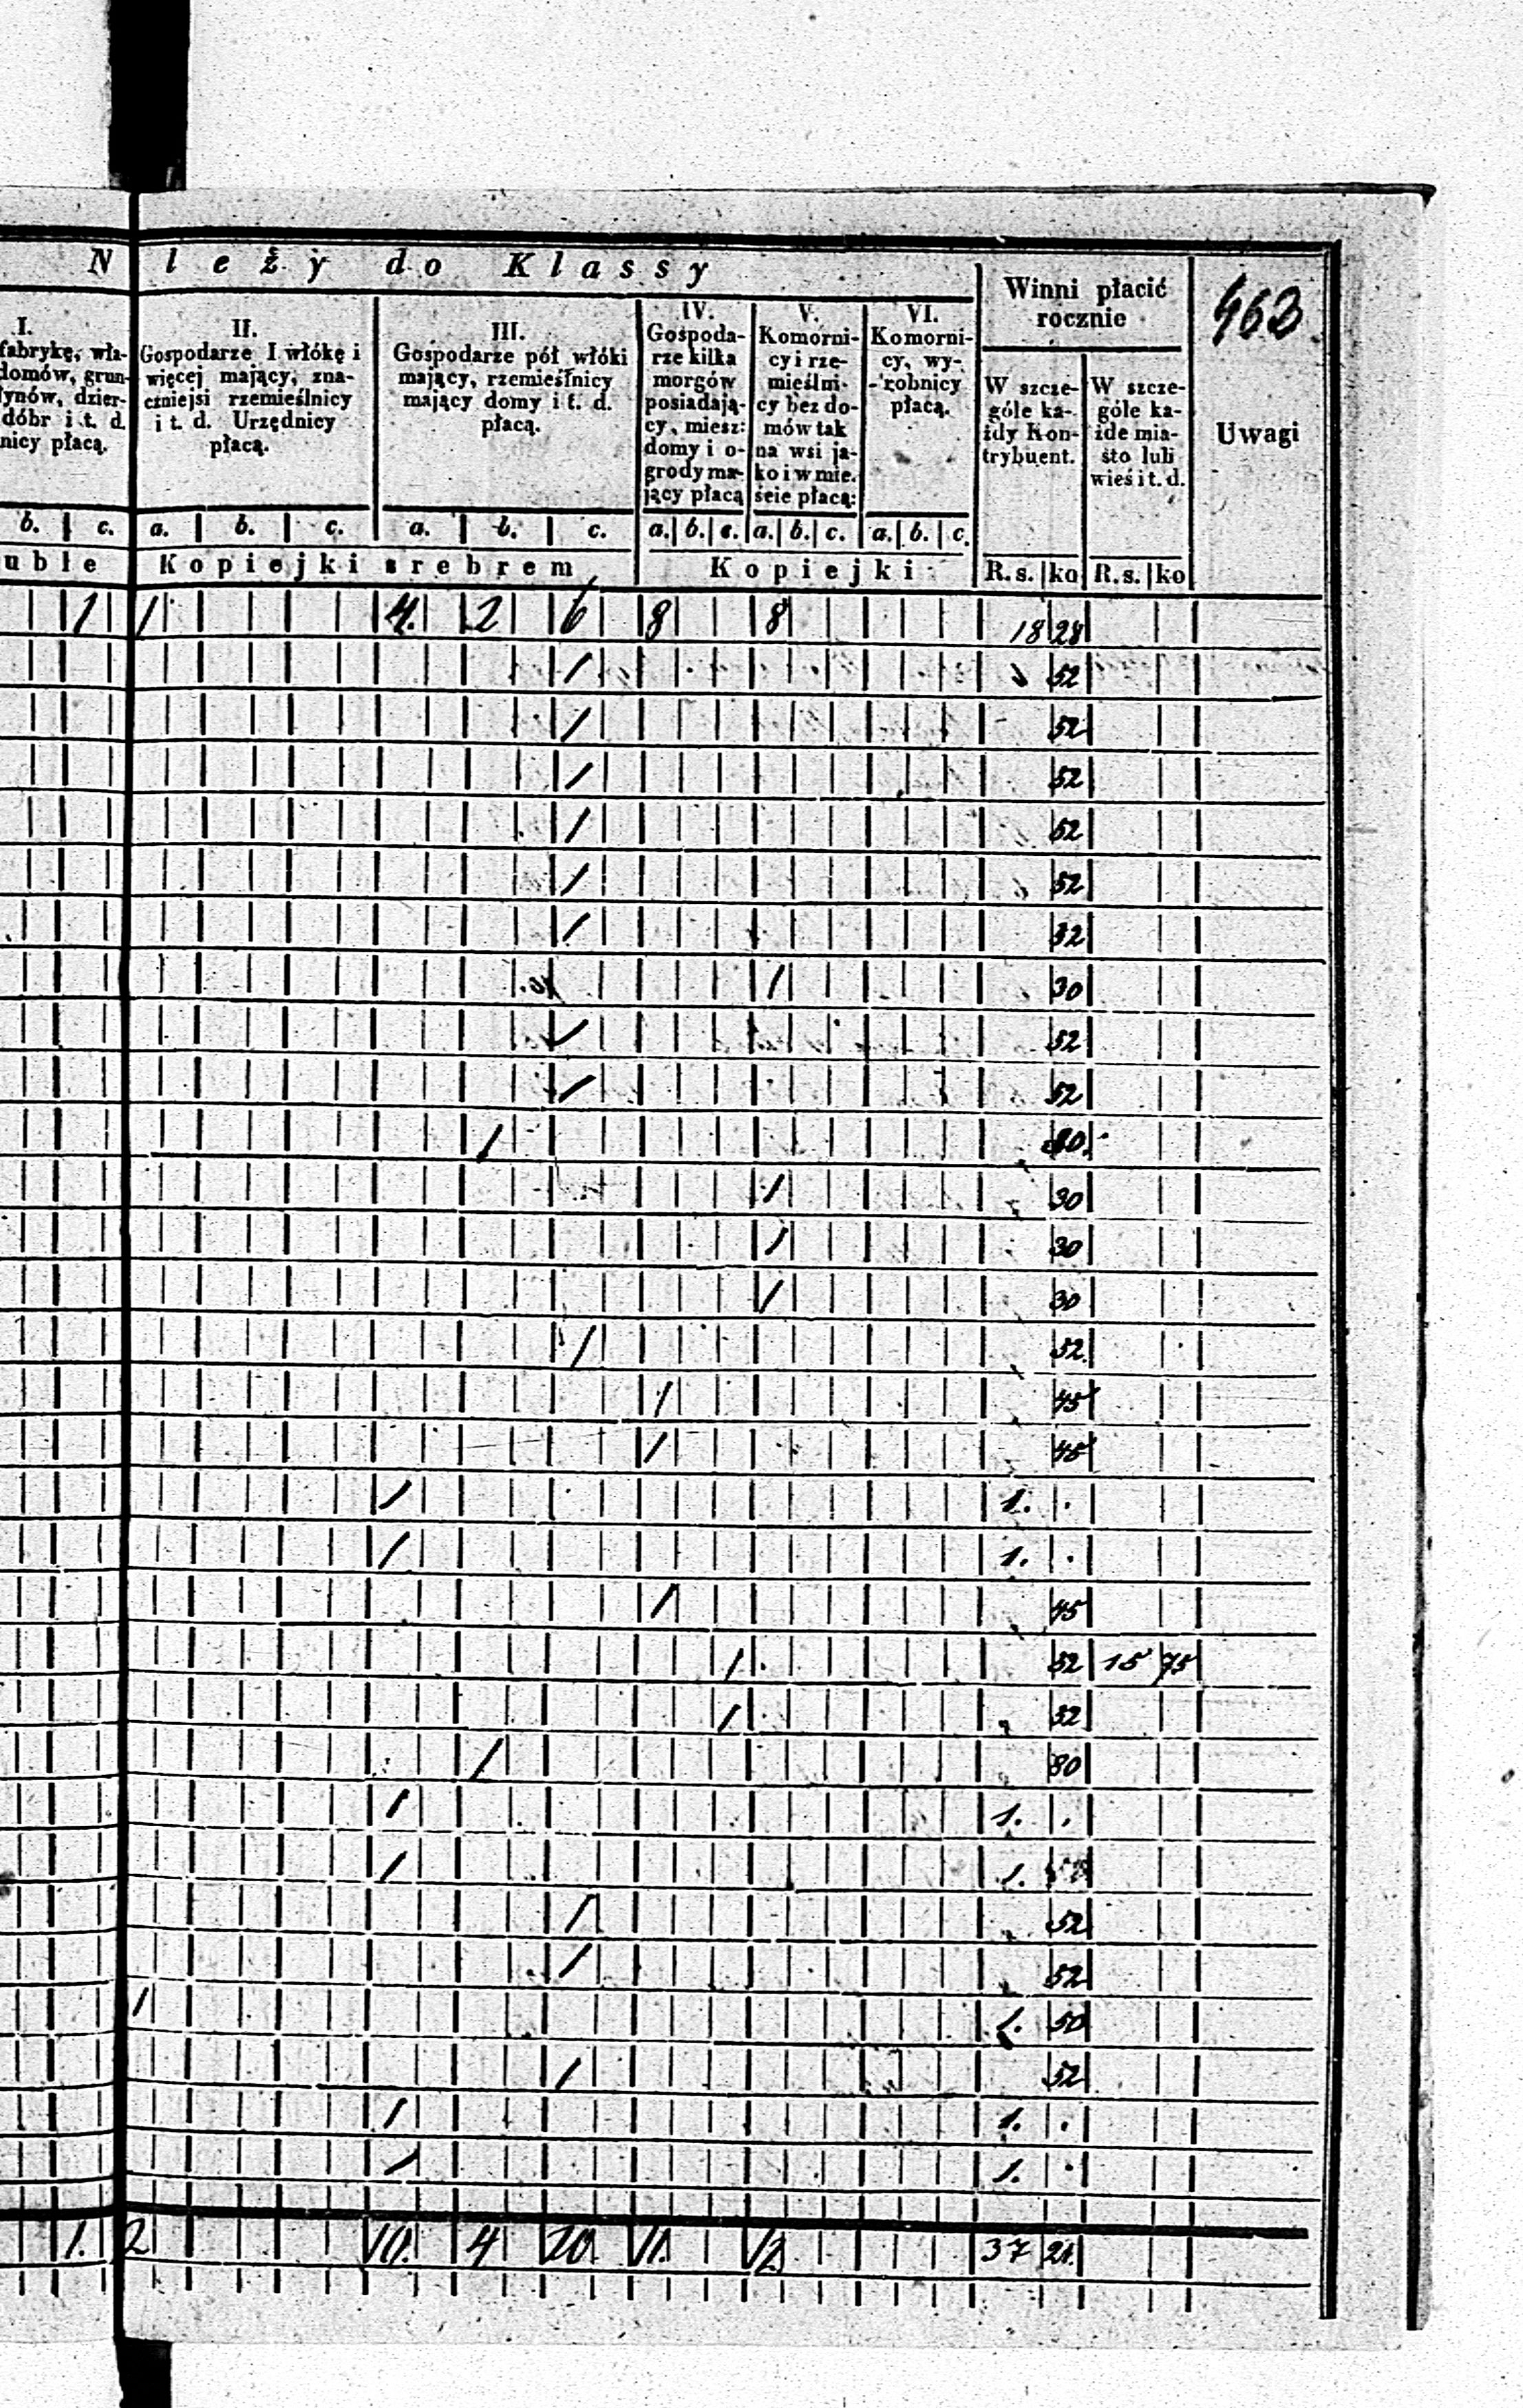 N leży do Klassy
Winni płacić
rocznie
463
I.
fabrykę, wła-
domów, grun-
łynów, dzier-
dóbr i t. d.
nicy płacą.
II.
Gospodarze I włókę i
więcej mający, zna-
czniejsi rzemieślnicy
i t. d. Urzędnicy
płacą.
III.
Gospodarze pół włóki
mający, rzemieślnicy
mający domy i t. d.
płacą.
IV.
Gospoda-
rze kilka
morgów
posiadają-
cy, miesz:
domy i o-
grody ma-
jący płacą
V.
Komorni-
cy i rze-
mieślni-
cy bez do-
mów tak
na wsi ja-
ko i w mie.
ście płacą:
VI.
Komorni-
cy, wy-
robnicy
płacą.
W szcze-
góle ka-
żdy Kon-
trybuent.
W szcze-
góle ka-
żde mia-
sto lub
wieś i t. d.
Uwagi
b. c. a. b. c. a. b. c. a. b. c. a. b. c. a. b. c.
uble Kopiejki srebrem Kopiejki R. s. ko R. s. ko
1 1 4. 2 6 8 8 18 28
/ 52
/ 52
/ 52
/ 52
/ 52
/ 52
/ 30
/ 52
/ 52
/ 80.
/ 30
/ 30
/ 30
/ 52
/ 45
/ 45
/ 1. .
/ 1. .
/ 45
/ 52 15 75
/ 32
/ 80
/ 1. .
/ 1.
/ 52
/ 52
/ 1. 50
/ 52
/ 1. .
/ 1. .
1. 2 10. 4 20. 11. 12 37 21.